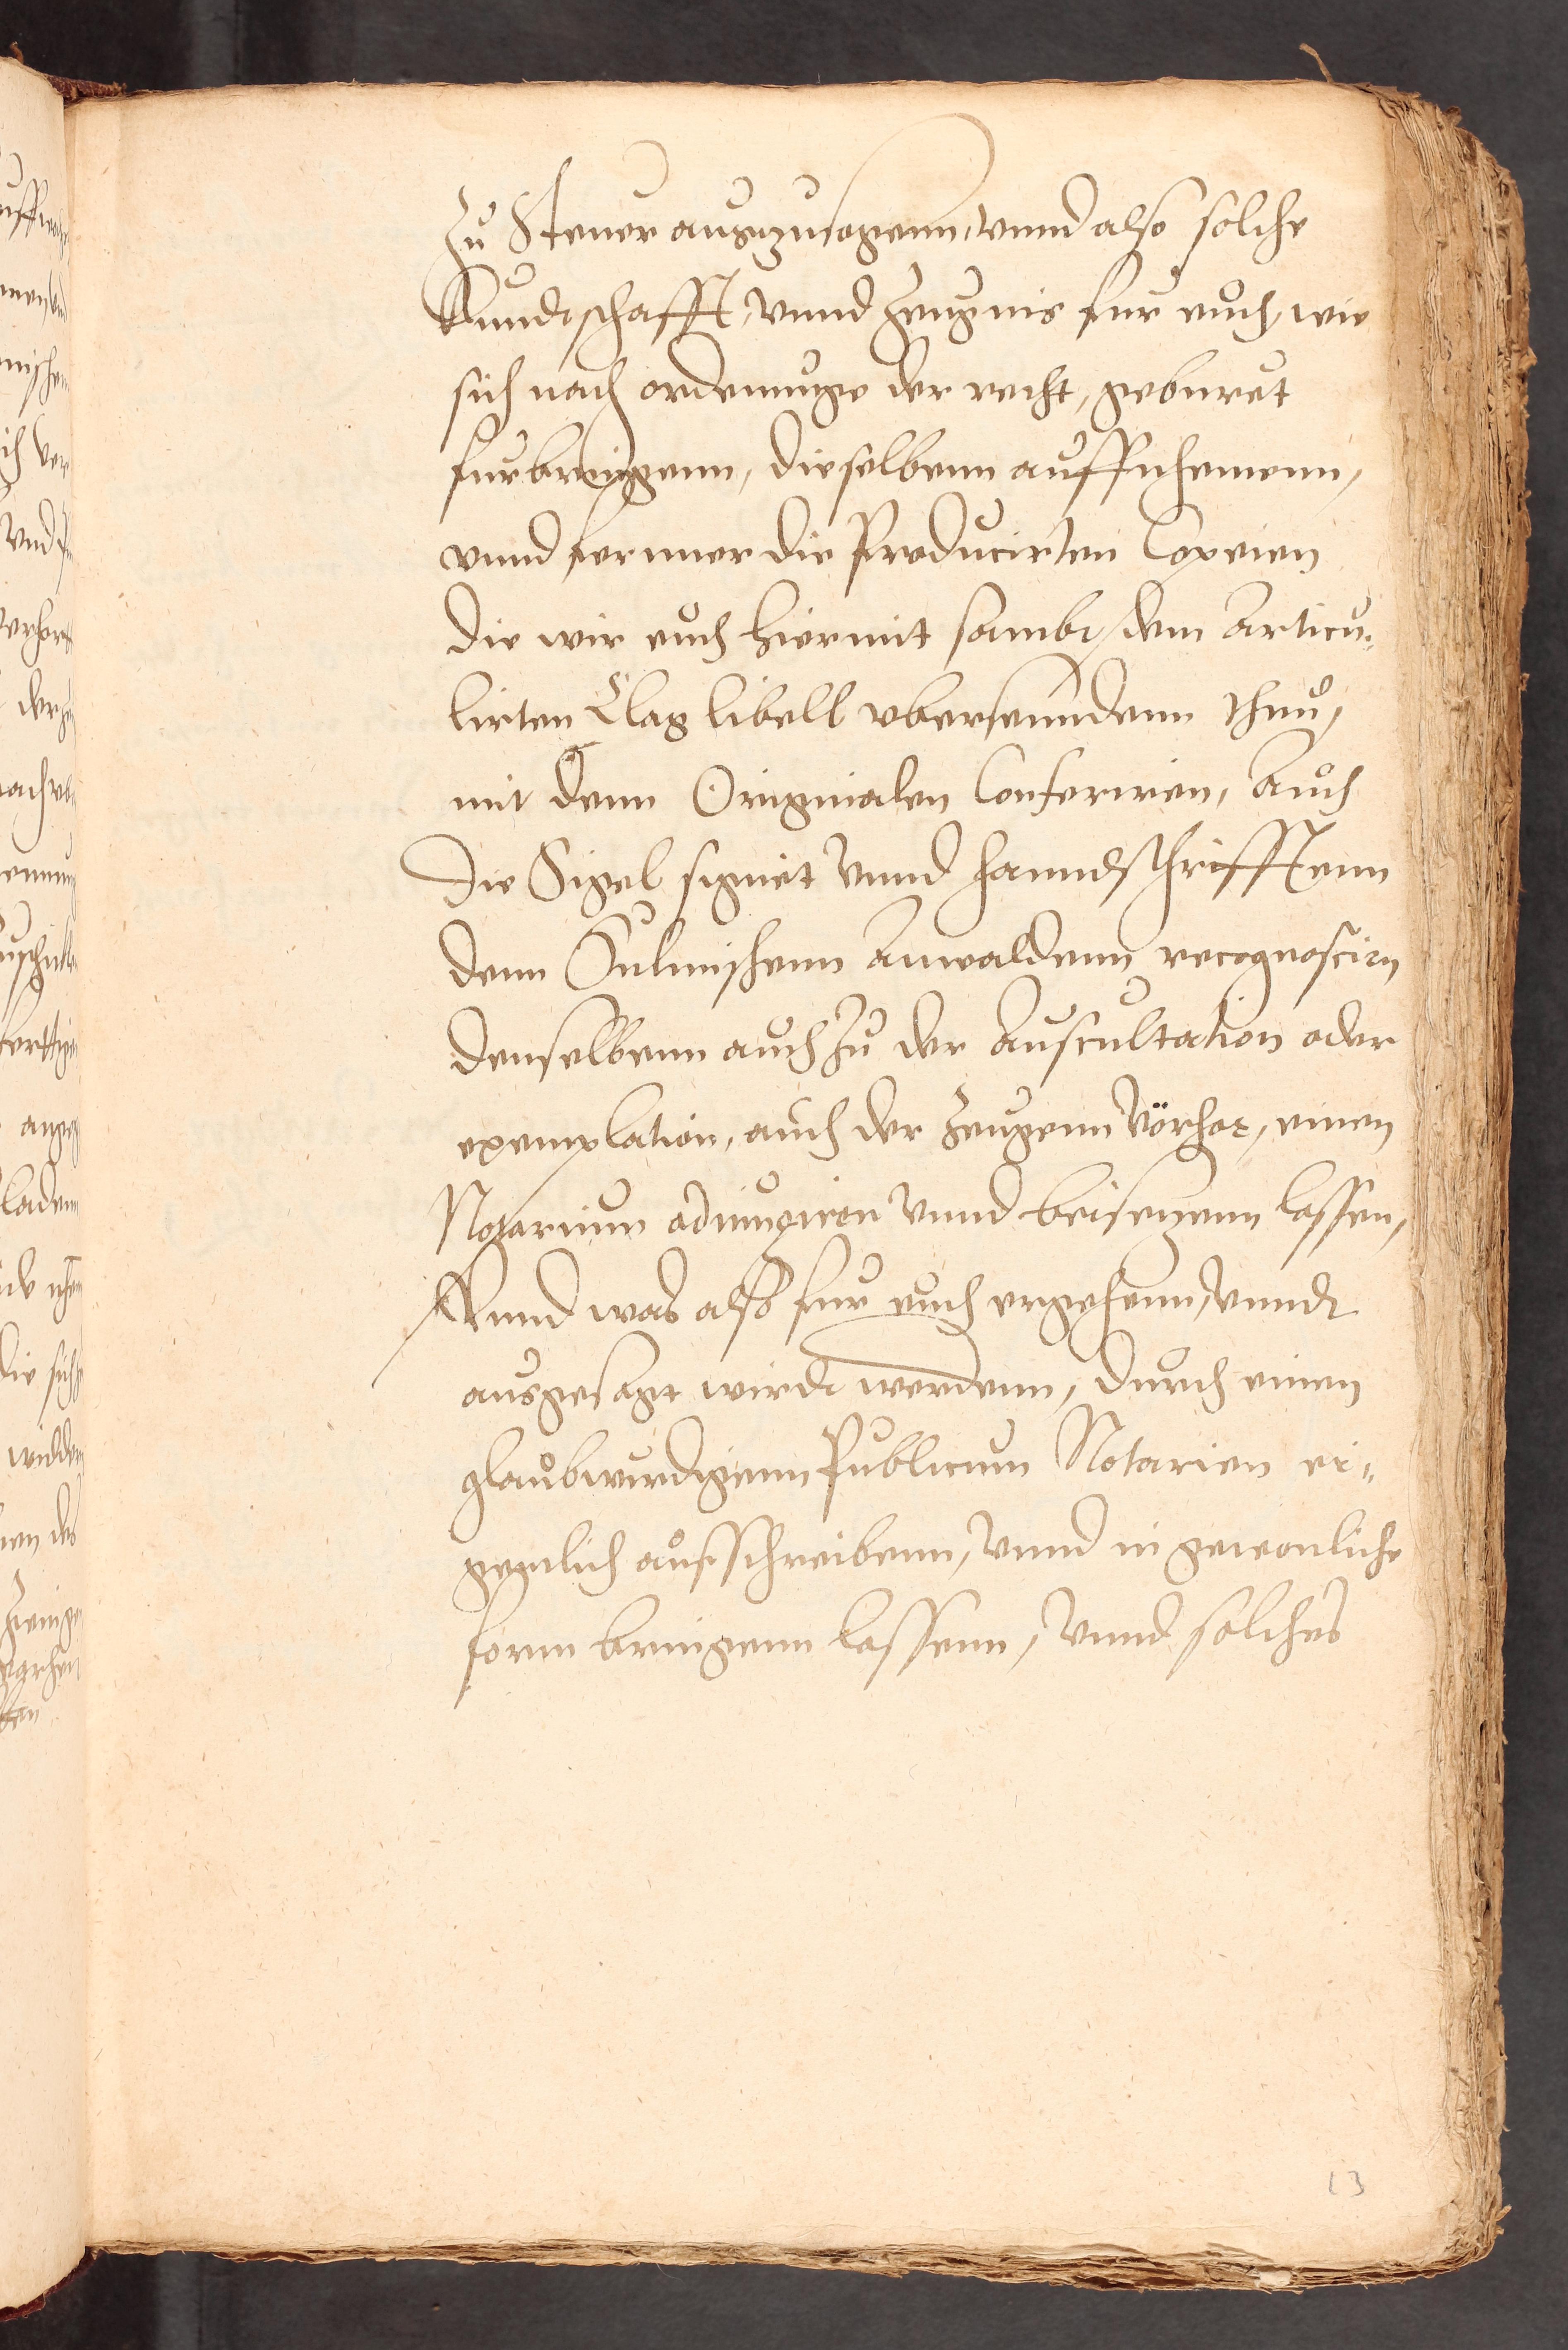 Zu Steuer auszusagenn, vnnd also solche
Kundtschafft, vnnd Zeugnis fur euch, wie
sich nach ordenunge der recht, geburet
furbringenn, dieselbenn auffnehemenn,
vnnd fernner die Producirten Copeien
die wir euch hiermit sambt dem Articu-
lirten Clag libell vbersenndenn thun,
mit denn Originalen Conferiren, Auch
die Sigel signet Vnnd hanndtschrifftenn
denn Culmischenn Anwaldenn recognosciren
denselbenn auch Zu der Auscultation oder
exemplation, auch der Zeugenn Vörhor, einen
Notarium adiungiren Vnnd beisetzenn lassen,
Vnnd was also fur euch ergehenn, vnndt
ausgesagt wirdt werdenn, durch einen
glaubwurdigenn Publicum Notarien ei-
gentlich aufschreibenn, Vnnd in gewonliche
form bringenn lassenn, Vnnd solches
13